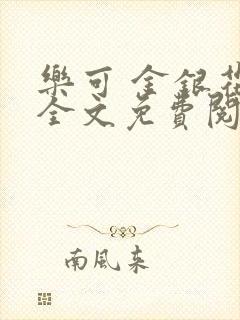 樂可 金銀花
全文免費閱
南風來